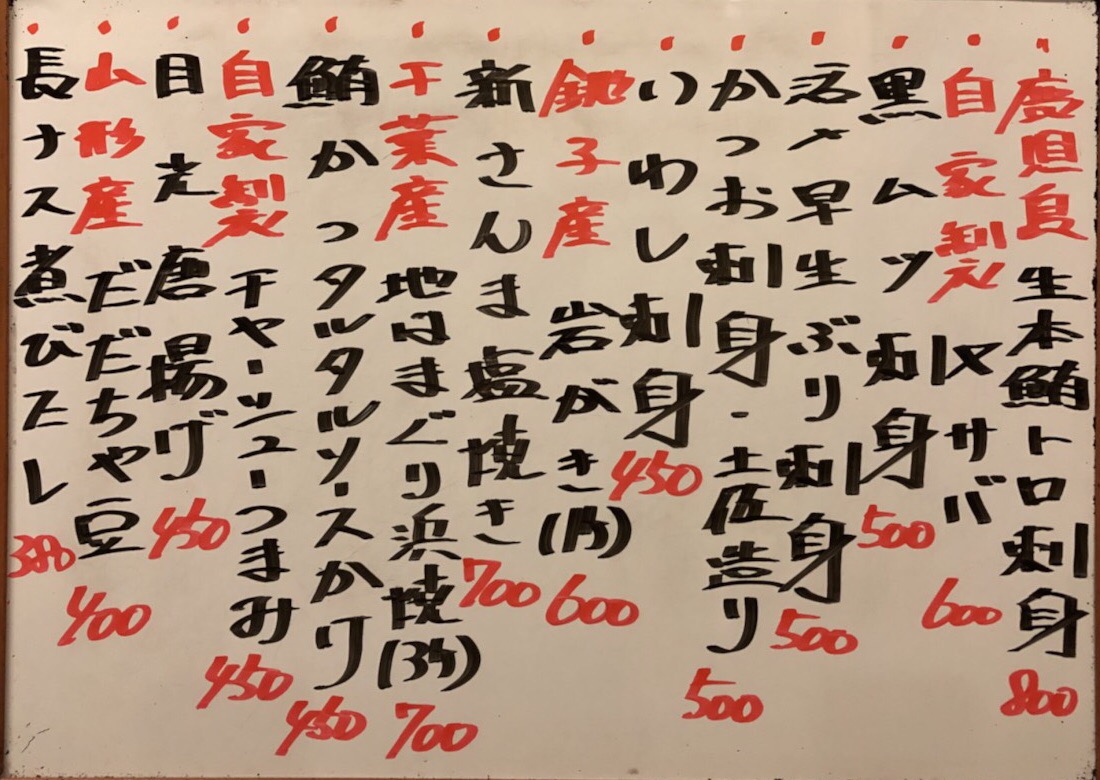 鹿児島 生本鮪トロ刺身 800
自家製 〆サバ 600
黒ムツ刺身 500
活〆早生ぶり刺身 500
かつお刺身・土佐造り 500
いわし刺身 450
銚子産 岩がき(1ヶ) 600
新さんま塩焼き 700
千葉産 地はまぐり浜焼(3ケ) 700
鮪かつタルタルソースかけ 450
自家製 チャーシューつまみ 450
目光唐揚げ 450
山形産 だだちゃ豆 400
長ナス煮びたし 380